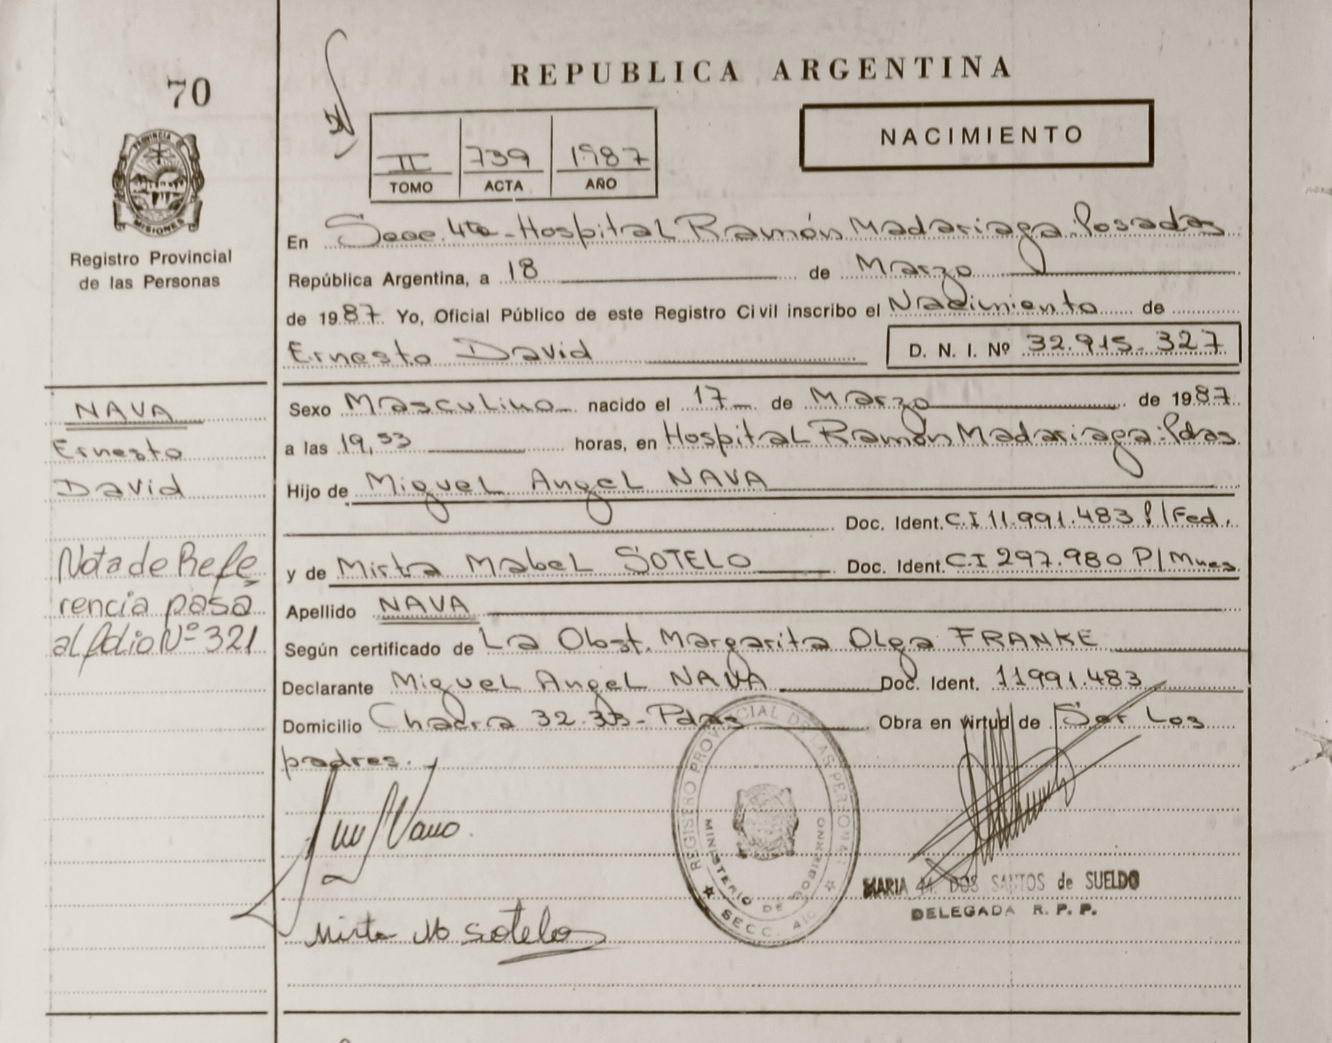 70
REPUBLICA ARGENTINA
NACIMIENTO
II 739 1987
TOMO ACTA AÑO
PROVINCIA DE
MISIONES
Registro Provincial
de las Personas
En Secc. 4ta - Hospital Ramón Madariaga. Posadas
República Argentina, a 18 de Marzo
de 1987. Yo, Oficial Público de este Registro Civil inscribo el Nacimiento de
Ernesto David D. N. I. Nº 32.915.327
NAVA
Ernesto
David
Nota de Refe
rencia pasa
al folio Nº 321
Sexo Masculino nacido el 17 de Marzo de 1987.
a las 19,53 horas, en Hospital Ramón Madariaga. Pdas
Hijo de Miguel Angel NAVA
Doc. Ident. C.I 11.991.483 P/Fed.
y de Mirta Mabel SOTELO Doc. Ident. CI 297.980 P/Mnes
Apellido NAVA
Según certificado de La Obst. Margarita Olga FRANKE
Declarante Miguel Angel NAVA Doc. Ident. 11991.483
Domicilio Chacra 32.33 - Pdas Obra en virtud de Ser Los
padres.
REGISERO PROVINCIAL DE LAS PERSONAS
MINISTERIO DE GOBIERNO
SECC. 4ta
MARIA M. DOS SANTOS de SUELDO
DELEGADA R. P. P.
Mirta M Sotelo